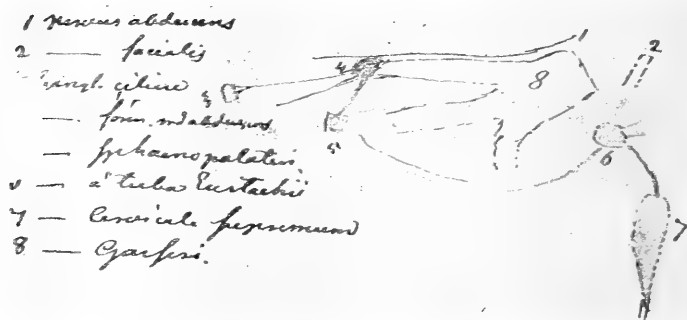 1 nervus abducens
2 — facialis
gangl. ciliare
— 
— sphaenopalatin.
— a tuba Eustachii
7 — Cervicale supremum
8 — Gasseri.
1
2
4
8
3
5
6
7